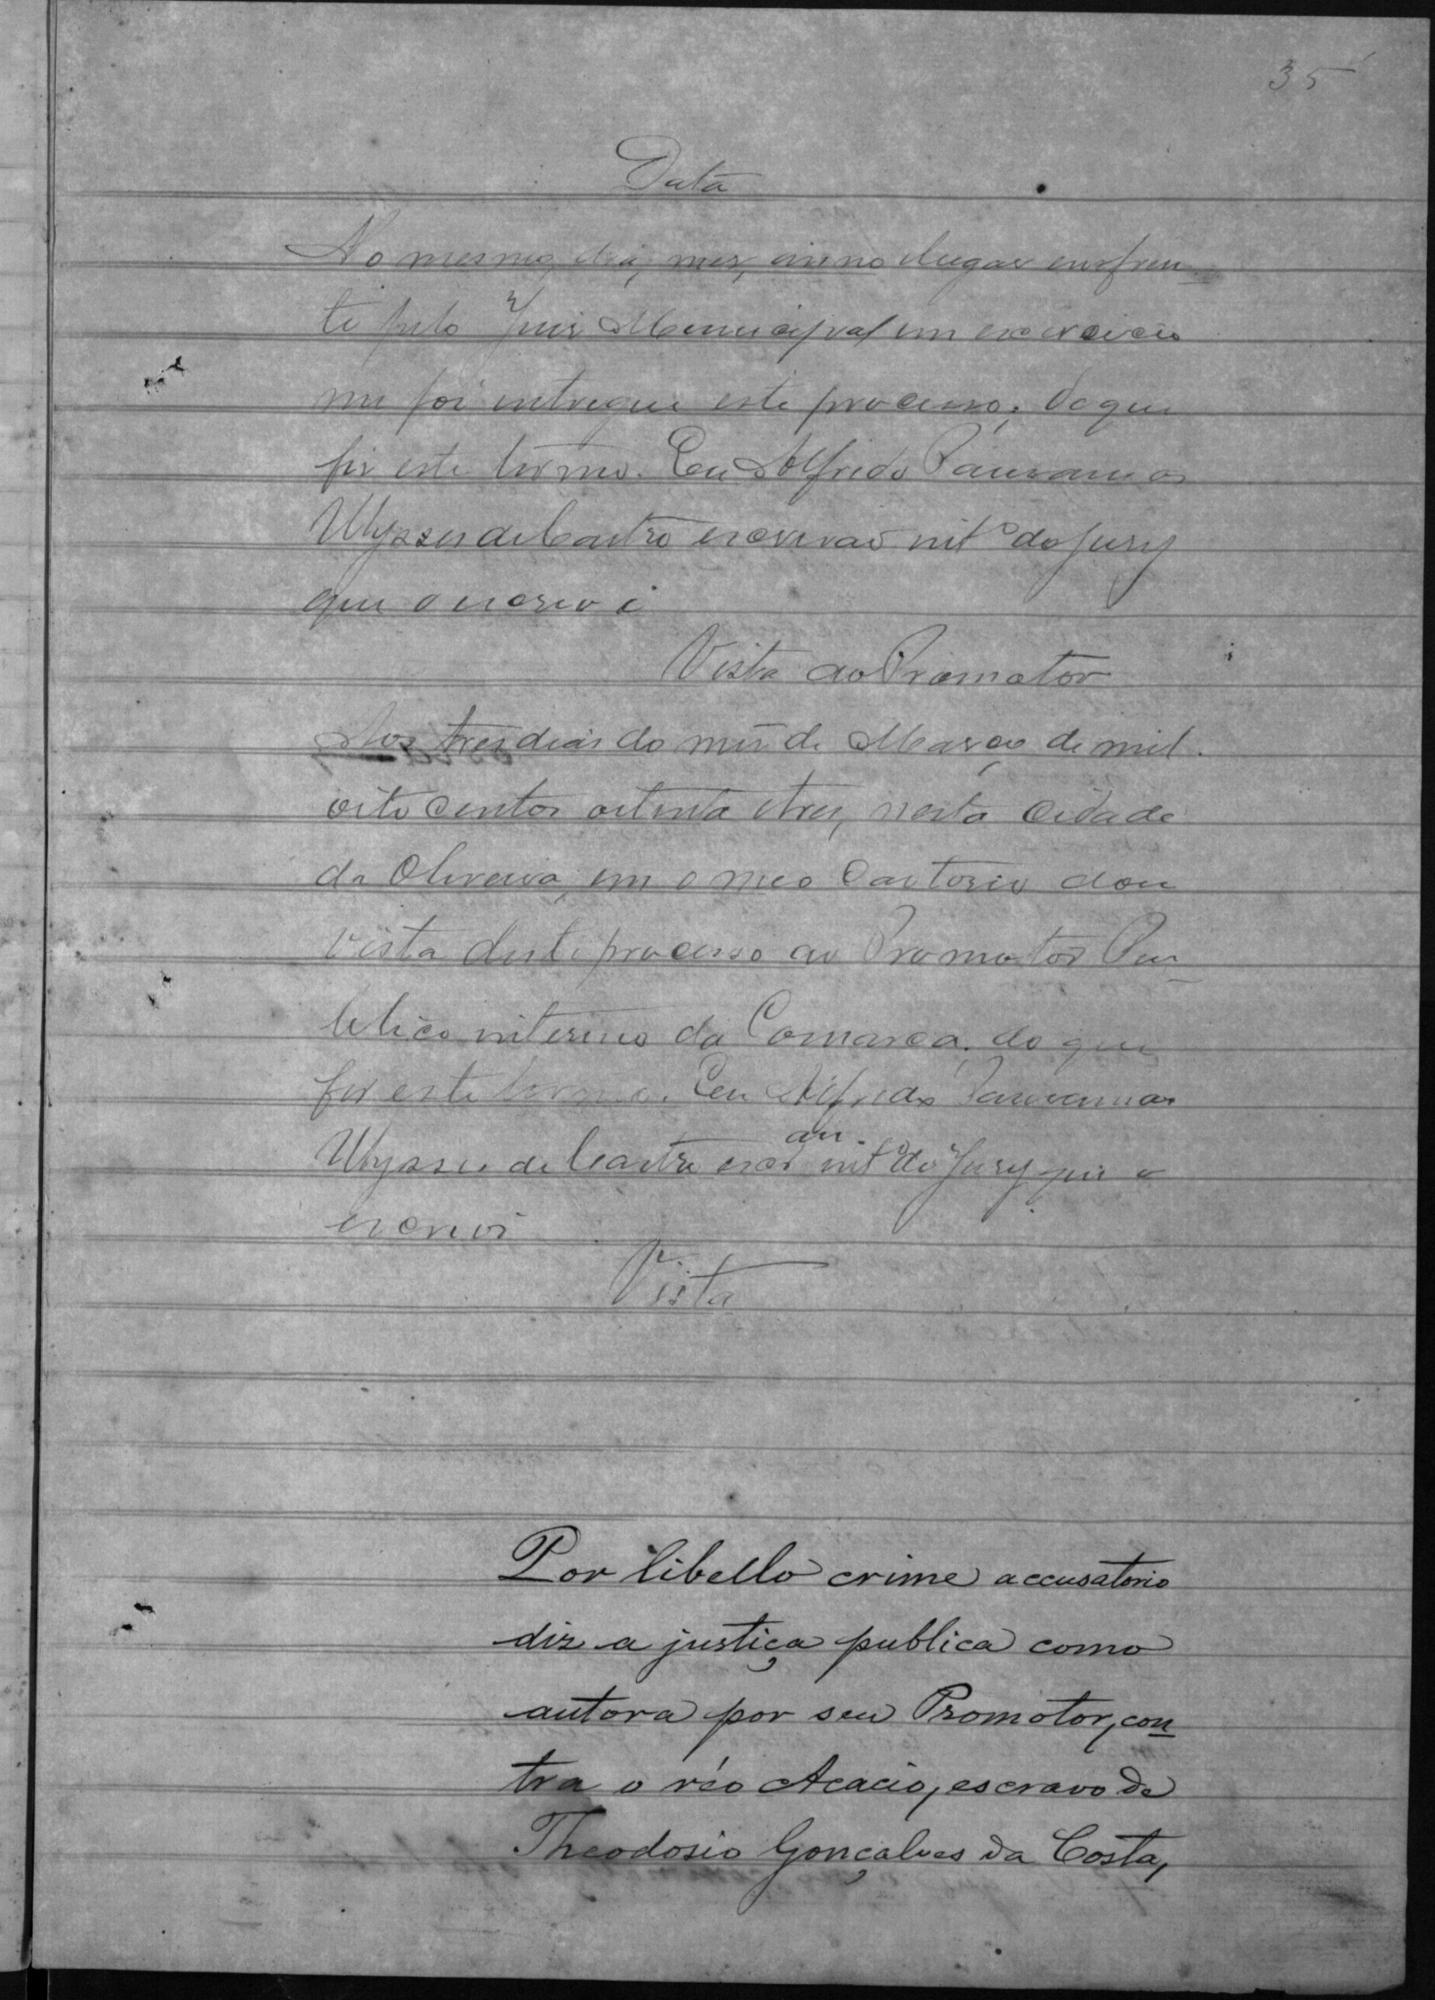 35
Data
No mesmo dia, mes, anno e lugar em fren-
te pelo Juis Municipal em exercicio
me foi entregue este processo; do que
fis este termo. Eu Alfredo
Ulysses de Castro escrivão intº do Jury
que o escrevi
Vista ao Promotor
Aos tres dias do mes de Março de mil
oito centos oitenta e tres, nesta cidade
da Oliveira, em o meo Cartorio dou
vista deste processo ao Promotor Pu-
blico interino da Comarca, do que
fis este termo. Eu Alfredo
Ulysses de Castro intº do Jury que o
escrevi
Vista
Por libello crime accusatorio
diz a justiça publica como
autora por seu Promotor, con-
tra o réo Acacio, escravo de
Theodosio Gonçalves da Costa,